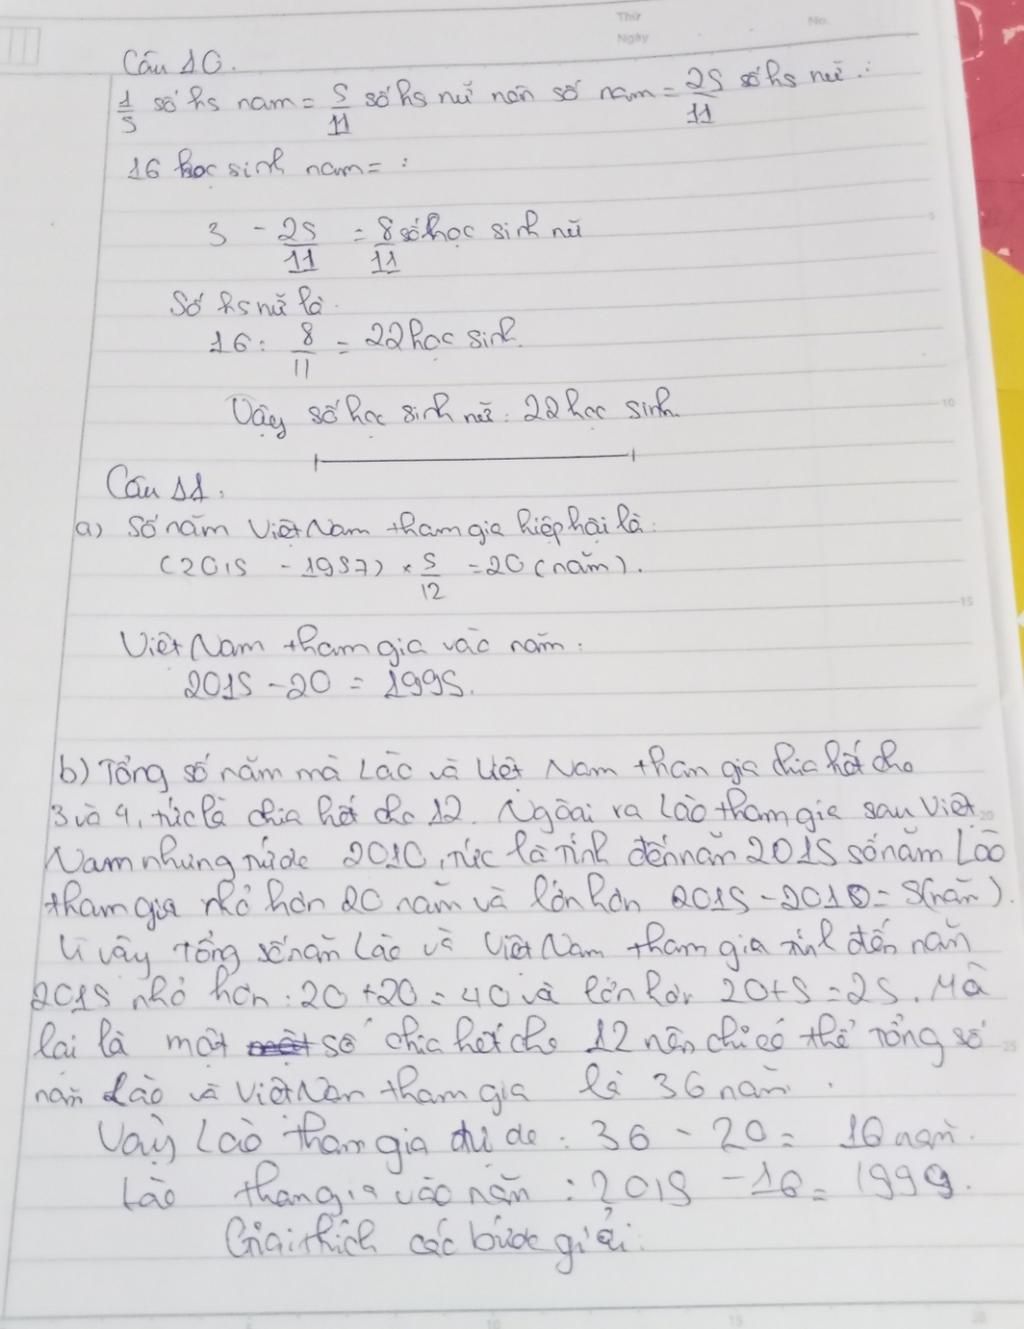 Thứ No.
Ngày
Câu 10.
1/5 số hs nam = 5/11 số hs nữ nên số nam = 25/11 số hs nữ :
16 học sinh nam = :
3 - 25/11 = 8/11 số học sinh nữ
Số hs nữ là.
16 : 8/11 = 22 học sinh.
Vậy số học sinh nữ : 22 học sinh.
Câu 11.
a) Số năm Việt Nam tham gia hiệp hội là :
(2015 - 1967) × 5/12 = 20 (năm).
Việt Nam tham gia vào năm :
2015 - 20 = 1995.
b) Tổng số năm mà Lào và Việt Nam tham gia chia hết cho
3 và 4, tức là chia hết cho 12. Ngoài ra Lào tham gia sau Việt
Nam nhưng trước 2010, tức là tính đến năm 2015 số năm Lào
tham gia nhỏ hơn 20 năm và lớn hơn 2015 - 2010 = 5 (năm).
Vì vậy tổng số năm Lào và Việt Nam tham gia tính đến năm
2015 nhỏ hơn : 20 + 20 = 40 và lớn hơn 20 + 5 = 25. Mà
lại là một số chia hết cho 12 nên chỉ có thể tổng số
năm Lào và Việt Nam tham gia là 36 năm.
Vậy Lào tham gia được : 36 - 20 = 16 năm.
Lào tham gia vào năm : 2015 - 16 = 1999.
Giải thích các bước giải :
5
10
15
20
25
10 15 20